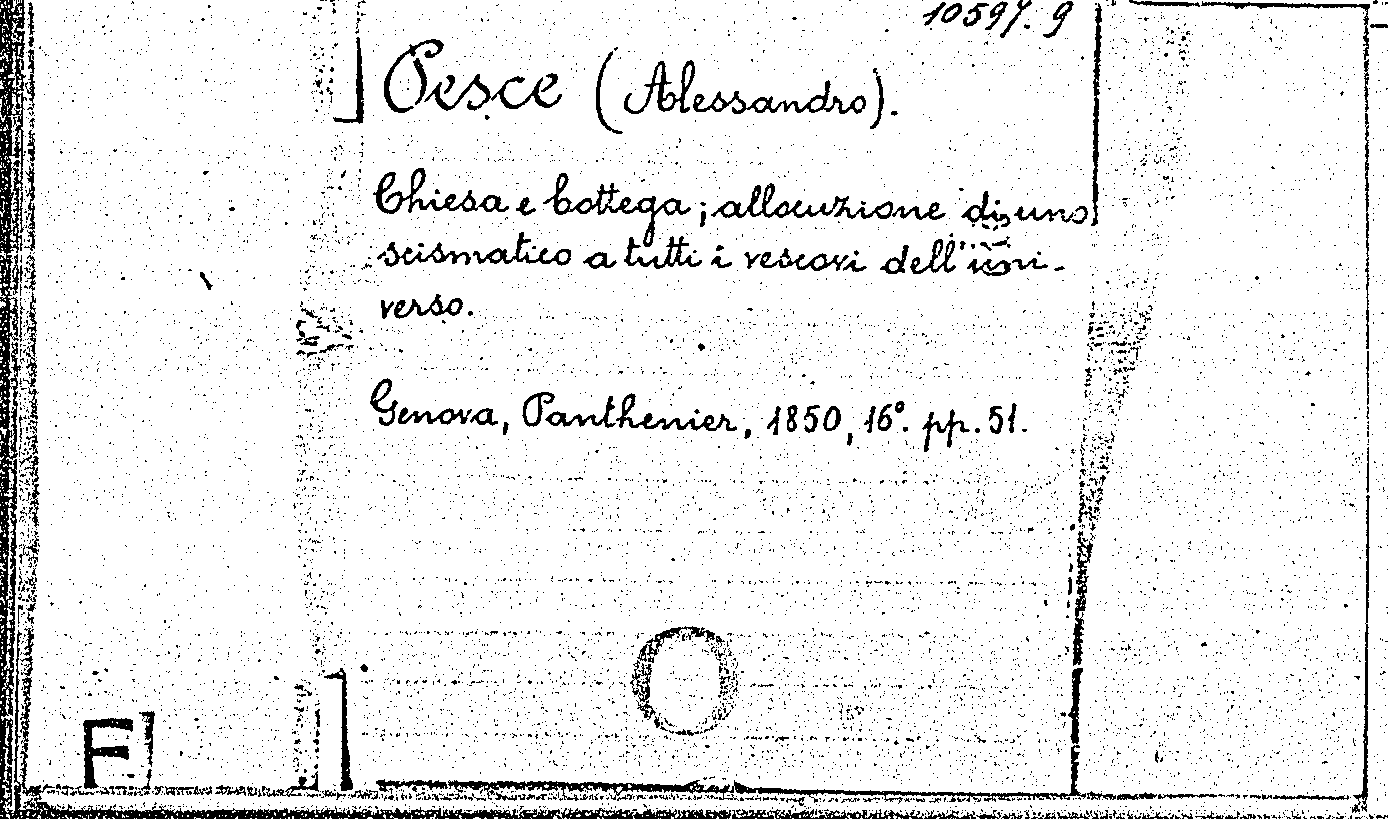 10597. 9
Pesce (Alessandro).
Chiesa e bottega; allocuzione di uno
scismatico a tutti i vescovi dell'uni-
verso.
Genova, Panthenier, 1850, 16°. pp. 51.
F